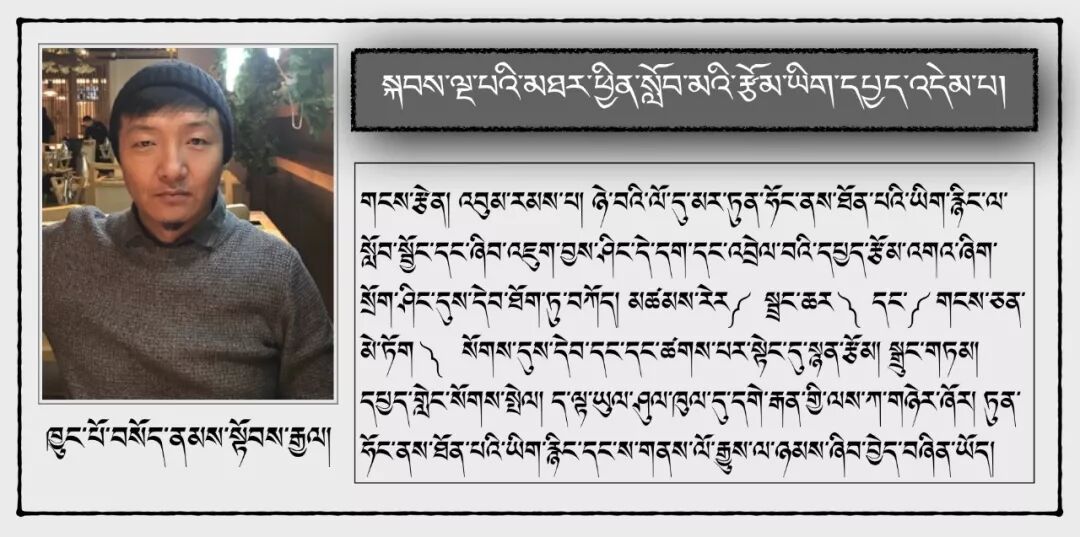 སྐབས་ལྔ་པའི་མཐར་ཕྱིན་སློབ་མའི་རྩོམ་ཡིག་དཔྱད་འདེམ་པ།
གངས་རྩེན། འབུམ་རམས་པ། ཉེ་བའི་ལོ་དུ་མར་ཏུན་ཧོང་ནས་ཐོན་པའི་ཡིག་རྙིང་ལ་
སློབ་སྦྱོང་དང་ཞིབ་འཇུག་བྱས་ཤིང་དེ་དག་དང་འབྲེལ་བའི་དཔྱད་རྩོམ་འགའ་ཞིག་
སྲོག་ཤིང་དུས་དེབ་ཐོག་ཏུ་བཀོད། མཚམས་རེར༼ སྦྲང་ཆར༽ དང་༼གངས་ཅན་
མེ་ཏོག༽ སོགས་དུས་དེབ་དང་དང་ཚགས་པར་སྟེང་དུ་སྙན་རྩོམ། སྒྲུང་གཏམ།
དཔྱད་གླེང་སོགས་སྤེལ། ད་ལྟ་ཡུལ་ཤུལ་ཁུལ་དུ་དགེ་རྒན་གྱི་ལས་ཀ་གཉེར་ཞོར། ཏུན་
ཧོང་ནས་ཐོན་པའི་ཡིག་རྙིང་དང་ས་གནས་ལོ་རྒྱུས་ལ་ཉམས་ཞིབ་བྱེད་བཞིན་ཡོད།
ཁྱུང་པོ་བསོད་ནམས་སྟོབས་རྒྱལ།